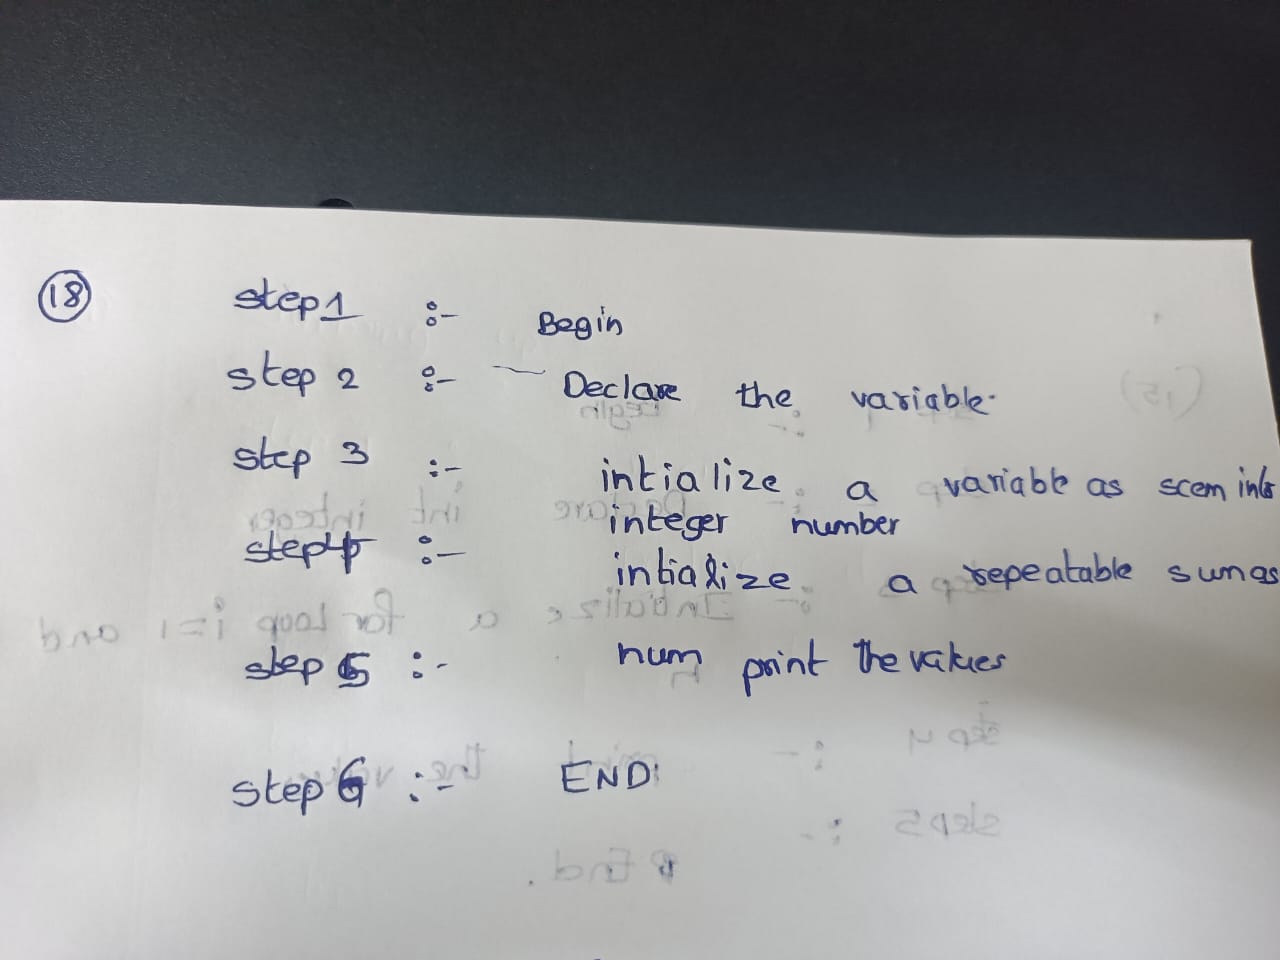 18
step 1 :- Begin
step 2 :- Declare the variable.
step 3 :- intialize a variable as
integer number
step 4 :- intialize a repeatable
step 5 :- num print the values
step 6 :- END